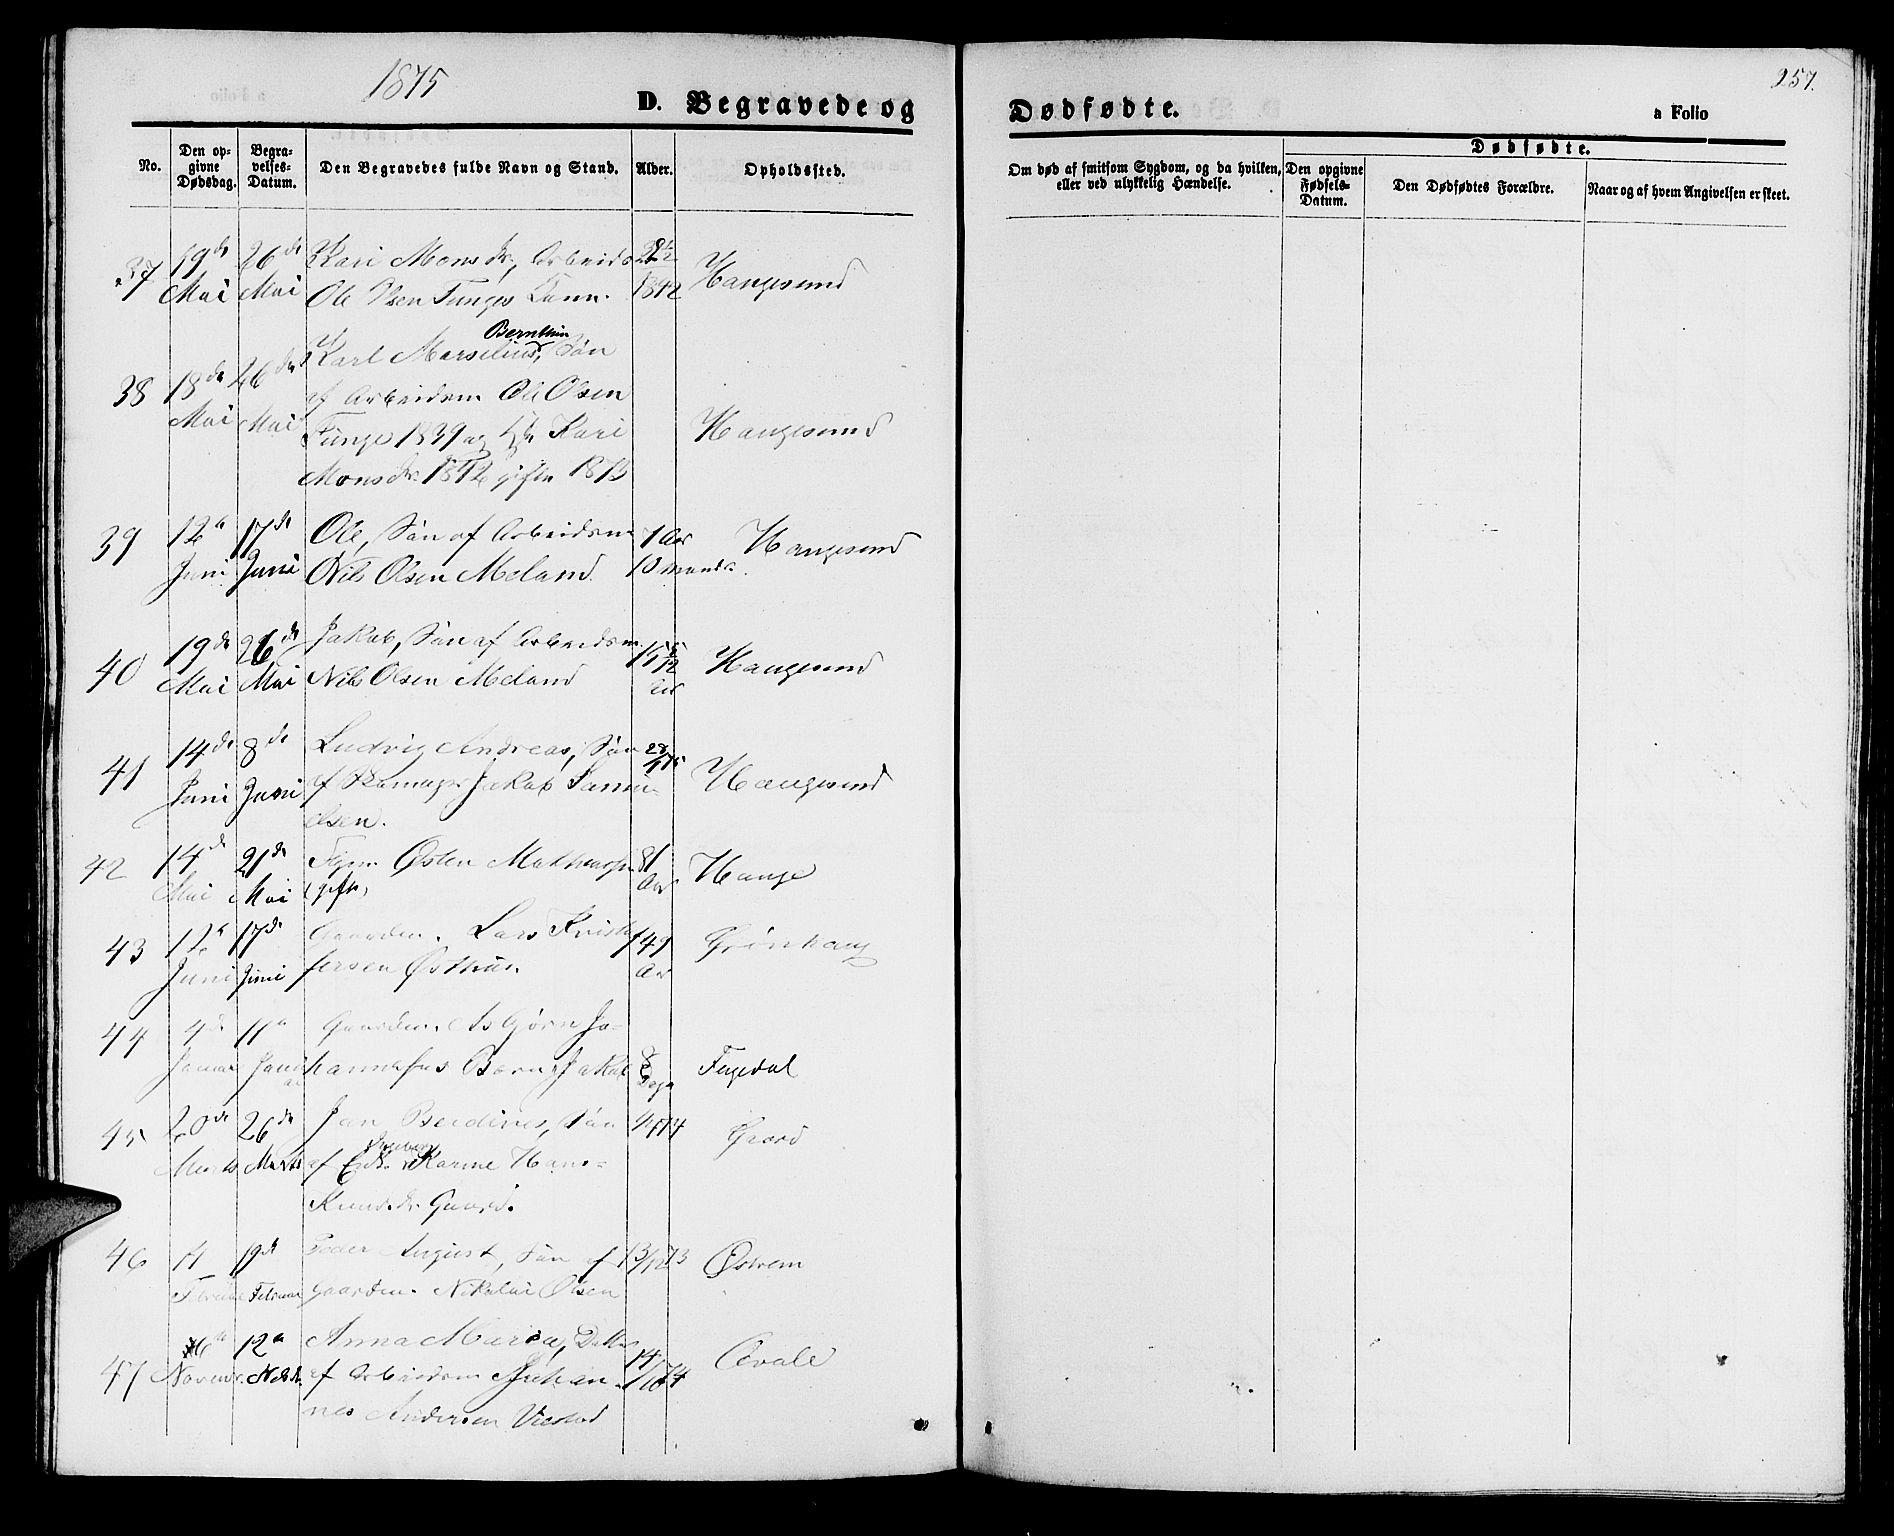 1875
D. Begravede og
Dødfødte.
257.
a Folio
No.
Den op-
givne
Dødsdag.
Begra-
velses-
Datum.
Den Begravedes fulde Navn og Stand.
Alder.
Opholdssted.
Om død af smitsom Sygdom, og da hvilken,
eller ved ulykkelig Hændelse.
Dødfødte.
Den opgivne
Fødsels-
Datum.
Den Dødfødtes Forældre.
Naar og af hvem Angivelsen er skeet.
37 19de 26de Kari Monsdr, Arbeids
Mai Mai Ole Olsen Tunges 1842 Haugesund
Bernthin
38 18de 26de Karl Marselius, Søn
Mai Mai af Arbeidsm Ole Olsen Haugesund
Tunge 1839 og Kari
Monsdr. 1842 gifte 1873
39 12te 17de Ole, Søn af Arbeidsm 1 Aar Haugesund
Juni Juni Nils Olsen Meland 10 Maand.
40 19de 26de Jakob, Søn af Arbeidsm Haugesund
Mai Mai Nils Olsen Meland
41 14de 8de Ludvig Andreas, Søn
Juni Juni af Skomager Jakob Samu- Haugesund
elsen.
42 14de 21de Østen 81 Hauge
Mai Mai (gift) Aar
43 12te 17de Gaardm. Lars Kristo 49 Grønhaug
Juni Juni fersen Østhus. Aar
44 4de 11te Gaardm. Asbjørn Jo-
Januar Janu hannesens Barn Jakob 8 Fagedal
ar Dage
45 20de 26de Jan Berdines, Søn Gaard
Marts Marts af Enke Karine Hans-
Knudsdr. Gaard.
46 11 19de Peder August, Søn af 13/12 73 Østrem
Februar Februar Gaardm. Nikolai Olsen
47 6te 12te Anna Maria, Datter 14 Avale
Novembr. af Arbeidsm Johan- /10 74
nes Andersen Vrestad